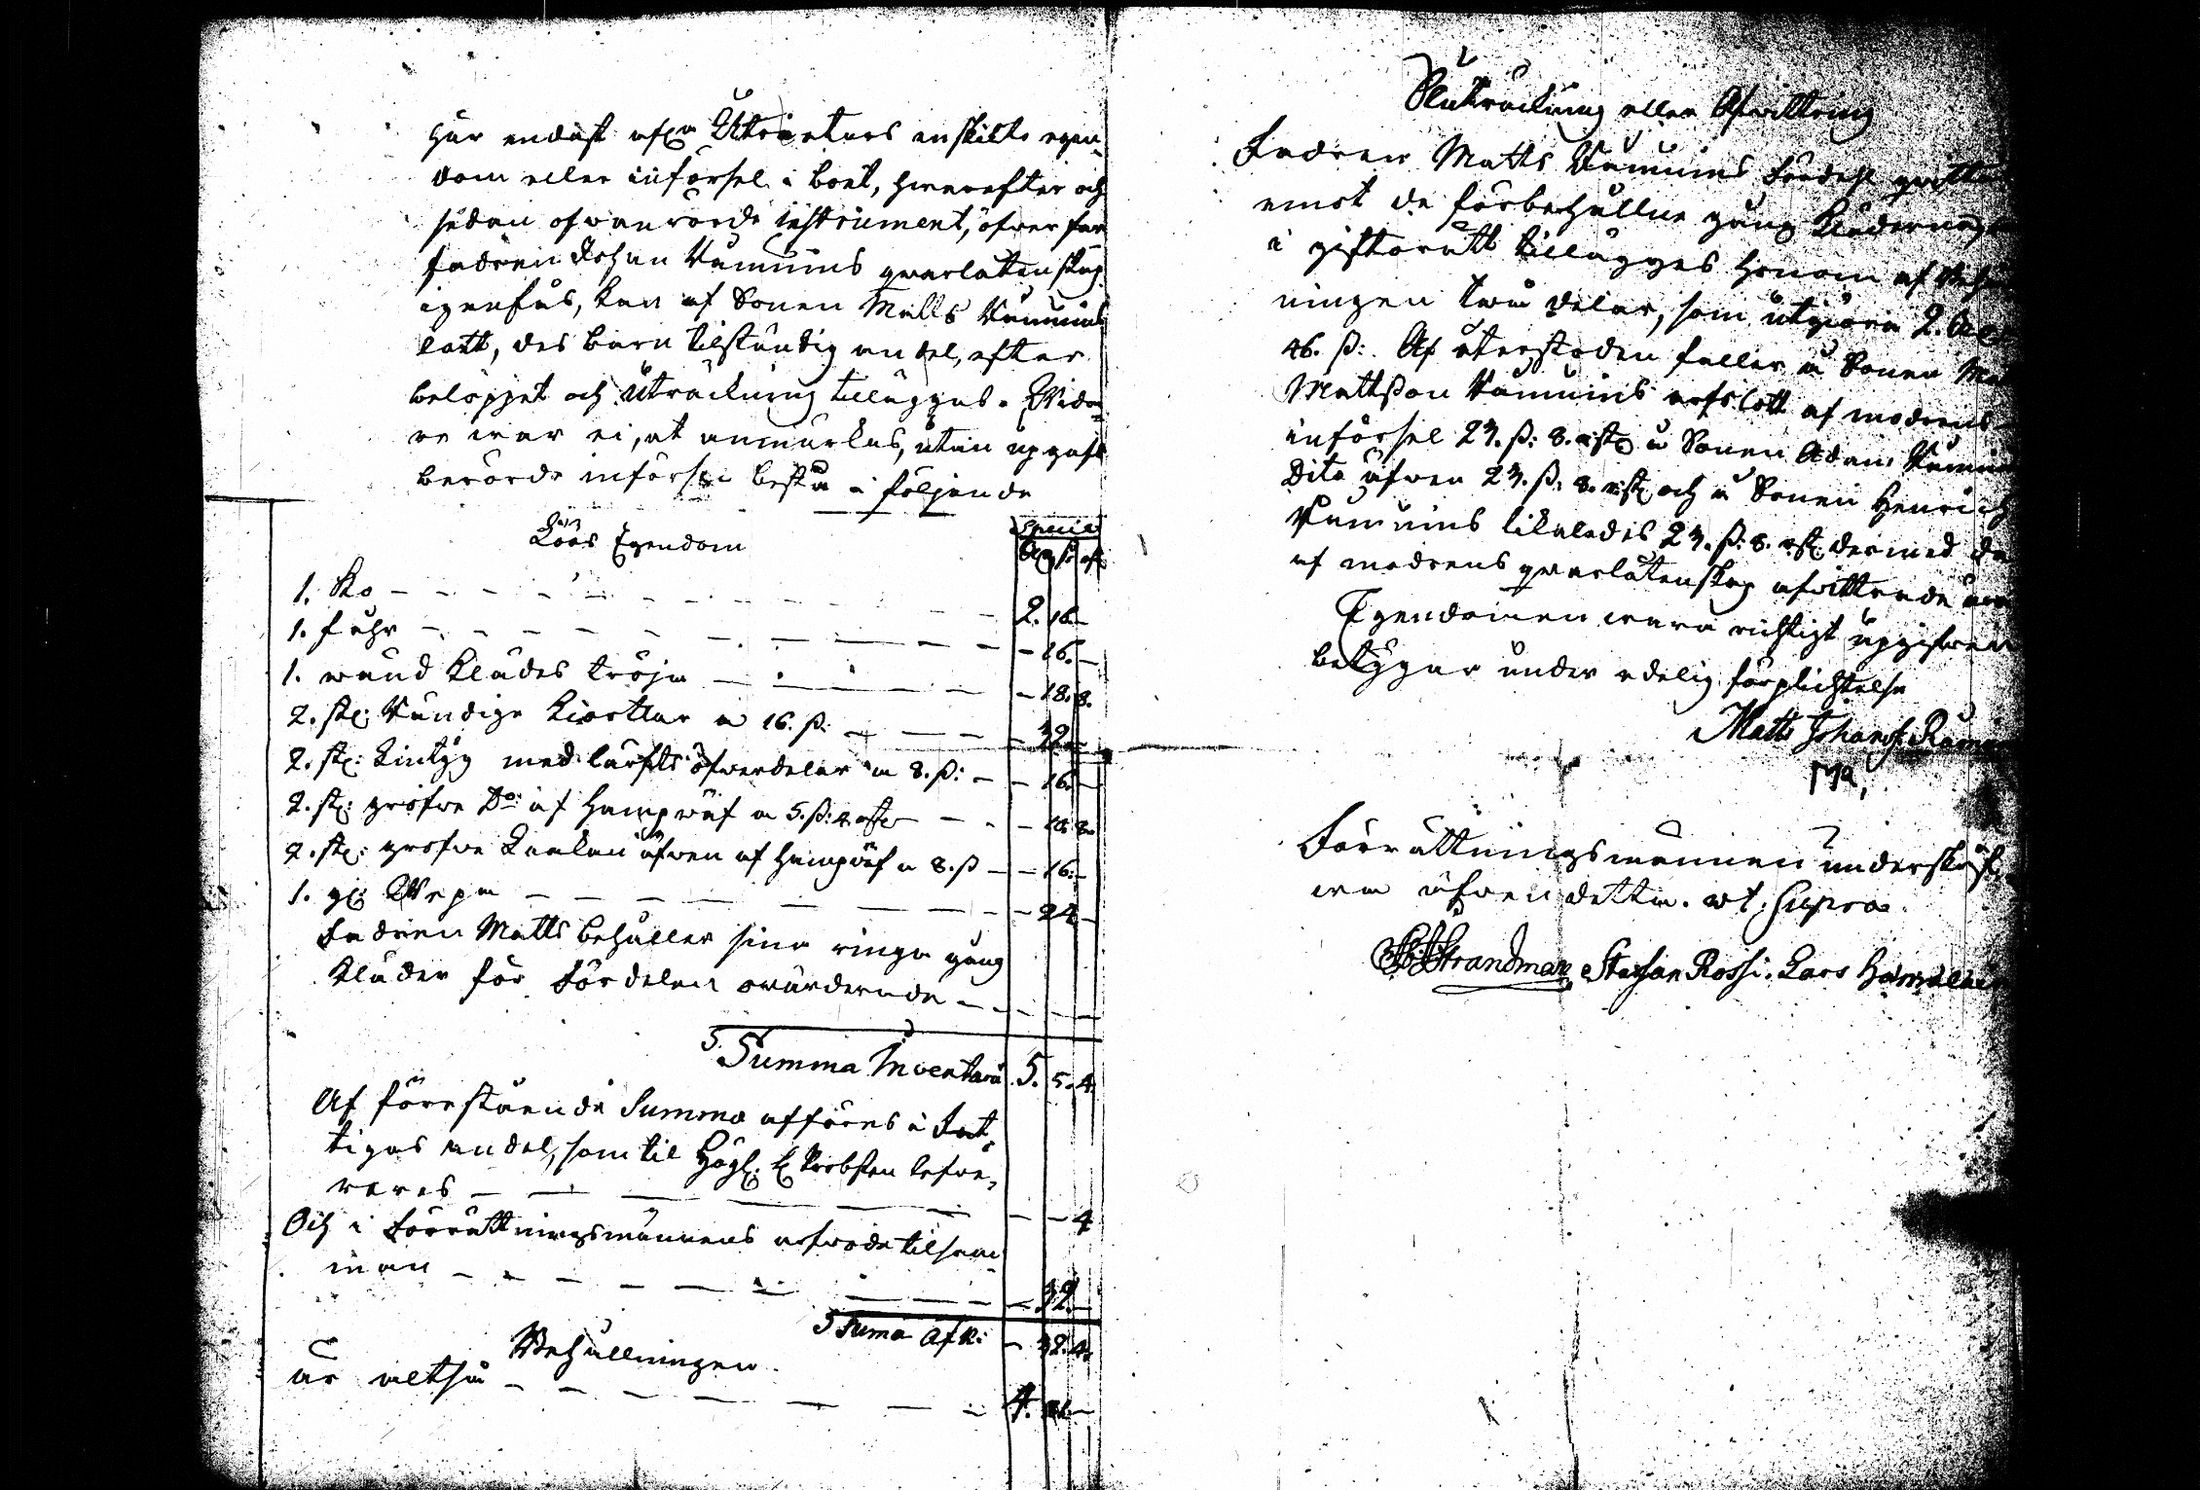 här endast afl: Ütrictars enskilte egen-
dom eller införsel i boet, hwarefter och
sedan ofwanrörde instrument, öfwer far
fadren Johan Rämüins qwarlåtenskap
igenfås, kan af Sonen Matts Rämüins
lott, des barn tilständig andel, efter
beloppet och üträckning tillägges. Wida-
re war ei, at anmärkas, ütan upgafs
berörde införsel bestå i följande
Löös Egendom
Specie
R:dr ß: rst:
1. Ko 2. 16. -
1. fähr - 16. -
1. wand Klädes tröja - 18. 8.
2. st: Randige Kiorttar a 16. ß: - 32. -
2. st: Lintyg med lärfts öfwerdelar a 8. ß: - 16. -
2. st: gröfre D:o af Hampwäf a 5. ß: 4. rst: - 10. 8.
2. st: grofwe Lakan äfwen af hampwäf a 8. ß - 16. -
1. gl: Wepa - 24. -
Fadren Matts behåller sina ringa gång
kläder för Fördelen owärderade
Summa Inventarii 5. 5. 4
Af förestående Summa afföres i Fat-
tigas andel, som til Högl: H: Probsten lefwe-
reres - - 4
Och i Förrättningsmännens arfwode tilsam
man - 32. -
Suma Afk: - 32. 4.
Behållningen
är altså 4. 21. -
Üträckning eller Afwittring
Fadren Matts Rämüins Fördehl qwittas
emot de förbehållne gång Kläderne,
i giftorätt tillägges honom af Behåll
ningen twå delar, som ütgiöra 2. R:dr
46. ß:. Af återstoden faller å Sonen Mat
Mattsson Rämüins arfslott af modrens
införsel 23. ß: 8. rst: å Sonen Adam Rämüin
Dito äfwen 23. ß: 8. rst: och å Sonen Henrich
Rämüins likaledes 23. ß: 8. rst: dermed de
af modrens qwarlåtenskap afwittrade äro
Egendomen wara richtigt üpgifwen
betygar under edelig förplichtelse
Matts Johans: Räm
Förrättningsmännen underskrif
wa äfwen detta. ut Supra
Strandman Staffan Rossi. Lars Hämäläin